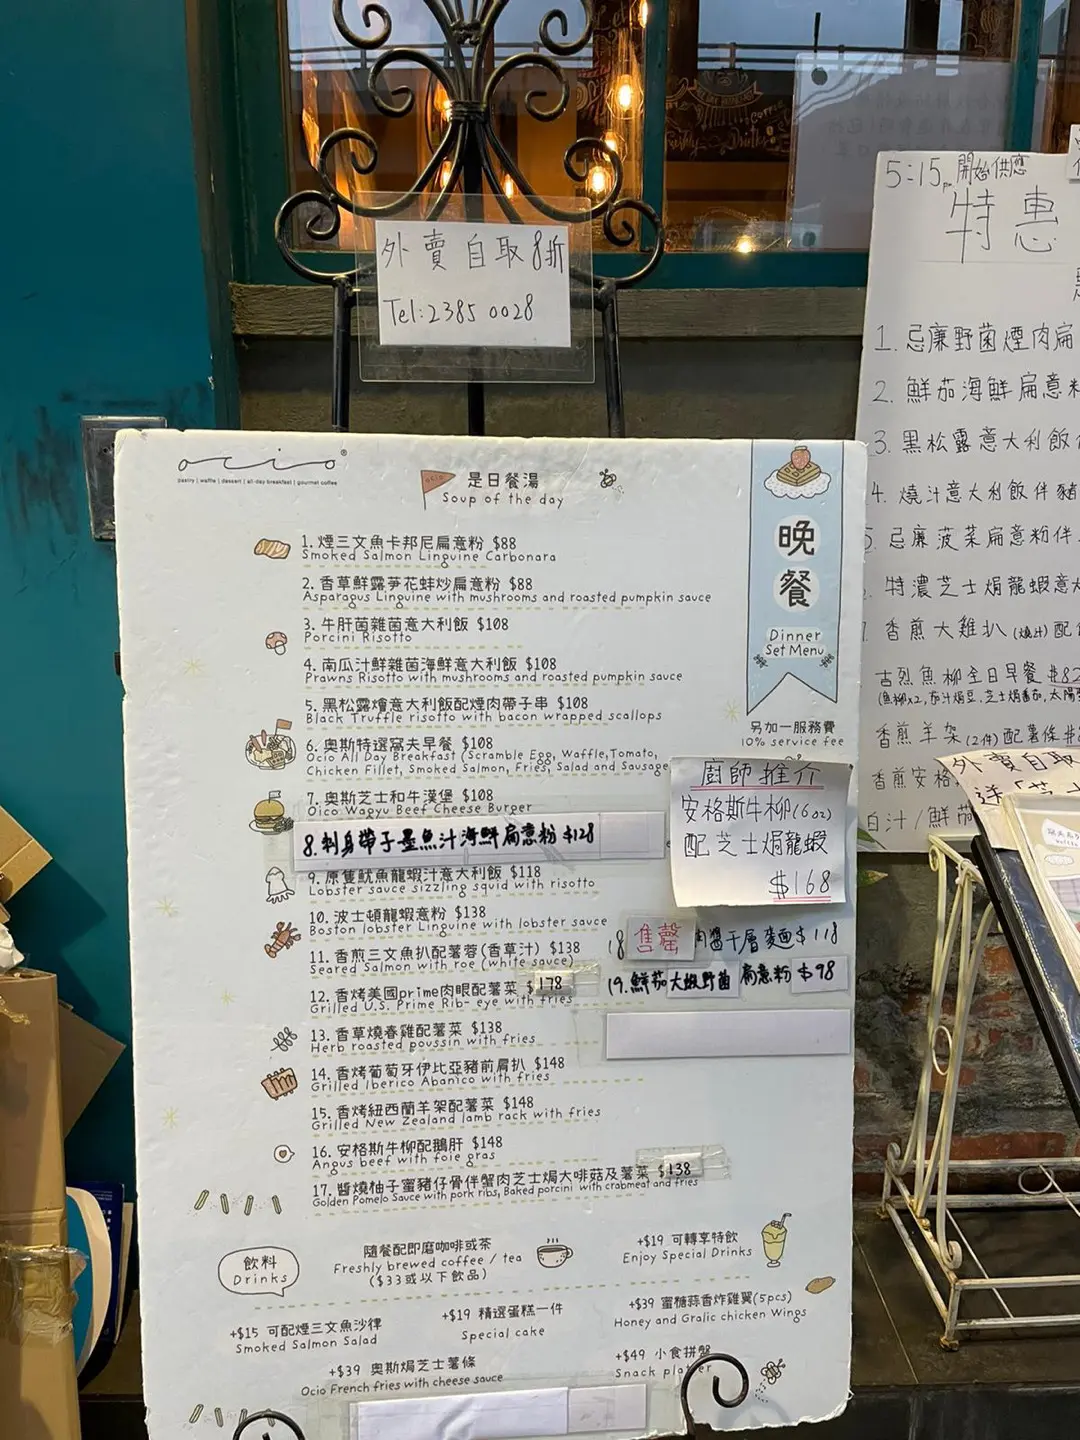 外賣自取8折
Tel:2385 0028
ocio
pastry | waffle | dessert | all-day breakfast | gourmet coffee
ocio
是日餐湯
Soup of the day
晚餐
Dinner
Set Menu
另加一服務費
10% service fee
1. 煙三文魚卡邦尼扁意粉 $88
Smoked Salmon Linguine Carbonara
2. 香草鮮露荀花蚌炒扁意粉 $88
Asparagus Linguine with mushrooms and roasted pumpkin sauce
3. 牛肝菌雜菌意大利飯 $108
Porcini Risotto
4. 南瓜汁鮮雜菌海鮮意大利飯 $108
Prawns Risotto with mushrooms and roasted pumpkin sauce
5. 黑松露燴意大利飯配煙肉帶子串 $108
Black Truffle risotto with bacon wrapped scallops
6. 奧斯特選窩夫早餐 $108
Ocio All Day Breakfast (Scramble Egg, Waffle,Tomato,
Chicken Fillet, Smoked Salmon, Fries, Salad and Sausage
7. 奧斯芝士和牛漢堡 $108
Oico Wagyu Beef Cheese Burger
8.刺身帶子墨魚汁海鮮扁意粉 $128
9. 原隻魷魚龍蝦汁意大利飯 $118
Lobster sauce sizzling squid with risotto
10. 波士頓龍蝦意粉 $138
Boston lobster Linguine with lobster sauce
11. 香煎三文魚扒配薯蓉(香草汁) $138
Seared Salmon with roe (white sauce)
12. 香烤美國prime肉眼配薯菜 $178
Grilled U.S. Prime Rib- eye with fries
13. 香草燒春雞配薯菜 $138
Herb roasted poussin with fries
14. 香烤葡萄牙伊比亞豬前肩扒 $148
Grilled Iberico Abanico with fries
15. 香烤紐西蘭羊架配薯菜 $148
Grilled New Zealand lamb rack with fries
16. 安格斯牛柳配鵝肝 $148
Angus beef with foie gras
17. 醬燒柚子蜜豬仔骨伴蟹肉芝士焗大啡菇及薯菜 $138
Golden Pomelo Sauce with pork ribs, Baked porcini with crabmeat and fries
廚師推介
安格斯牛柳(6oz)
配芝士焗龍蝦
$168
18 售罄 肉醬千層麵 $118
19.鮮茄大蝦野菌扁意粉 $98
飲料
Drinks
隨餐配即磨咖啡或茶
Freshly brewed coffee / tea
($33或以下飲品)
+$19 可轉享特飲
Enjoy Special Drinks
+$15 可配煙三文魚沙律
Smoked Salmon Salad
+$19 精選蛋糕一件
Special cake
+$39 蜜糖蒜香炸雞翼(5pcs)
Honey and Gralic chicken Wings
+$39 奧斯焗芝士薯條
Ocio French fries with cheese sauce
+$49 小食拼盤
Snack platter
5:15pm開始供應
特惠
1. 忌廉野菌煙肉扁
2. 鮮茄海鮮扁意粉
3. 黑松露意大利飯
4. 燒汁意大利飯伴豬
5. 忌廉菠菜扁意粉伴
特濃芝士焗龍蝦意大
香煎大雞扒(燒汁)配
吉烈魚柳全日早餐 $82
(魚柳x2,茄汁焗豆,芝士焗蕃茄,太陽
香煎羊架(2件)配薯條
香煎安格
白汁/鮮茄
外賣自取
送